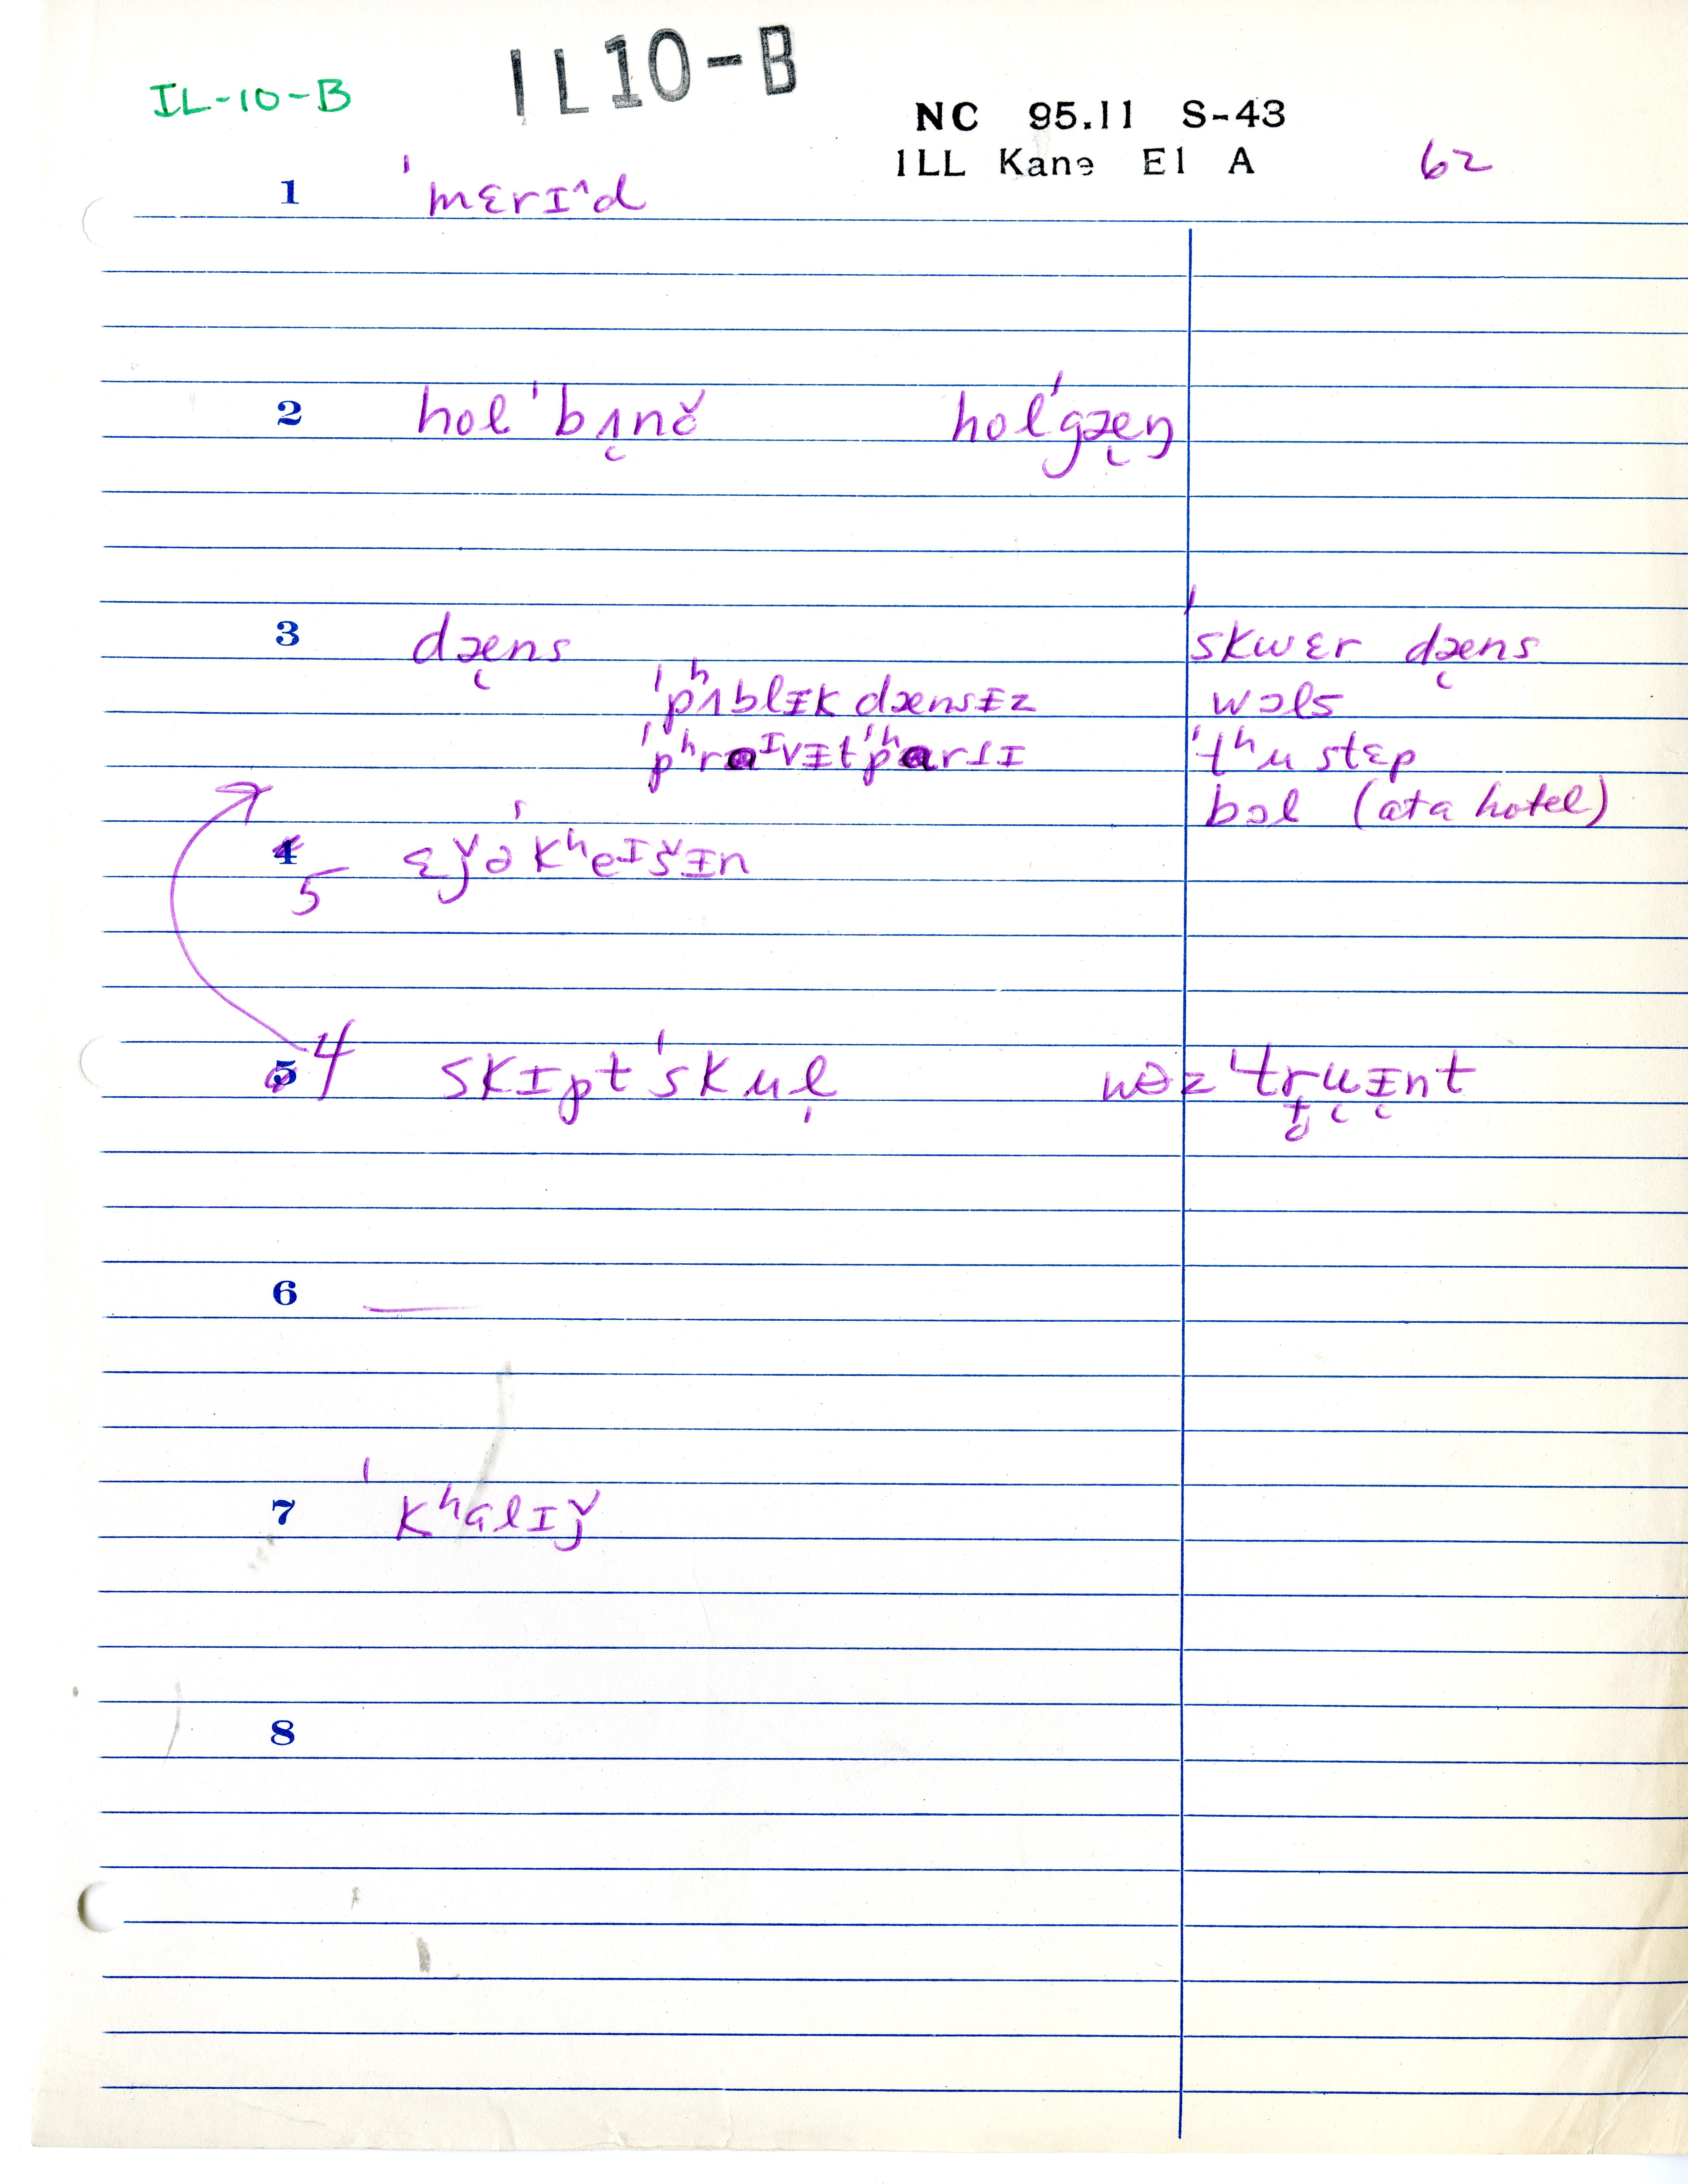 IL-10-B
IL10-B
NC 95.11 S-43
ILL Kane El A
62
1 ˈmɛrɪ^d
2 hol ˈbʌ̜nč hol ˈgæ̜ŋ
3 dæ̜ns ˈskwɛr dæ̜ns
ˈpʰʌblɪ̵k dænsɪ̵z wɔls
ˈpʰraᴵvɪ̵t ˈpʰɑrɾɪ ˈtʰu stɛp
bɔl (at a hotel)
4 5 ɛǰəˈkʰeɪšɪ̵n
5 4 skɪpt ˈskul̩ wəz ˈtr̥u̜ɪ̵̜nt
6 —
7 ˈkʰɑlɪǰ
8